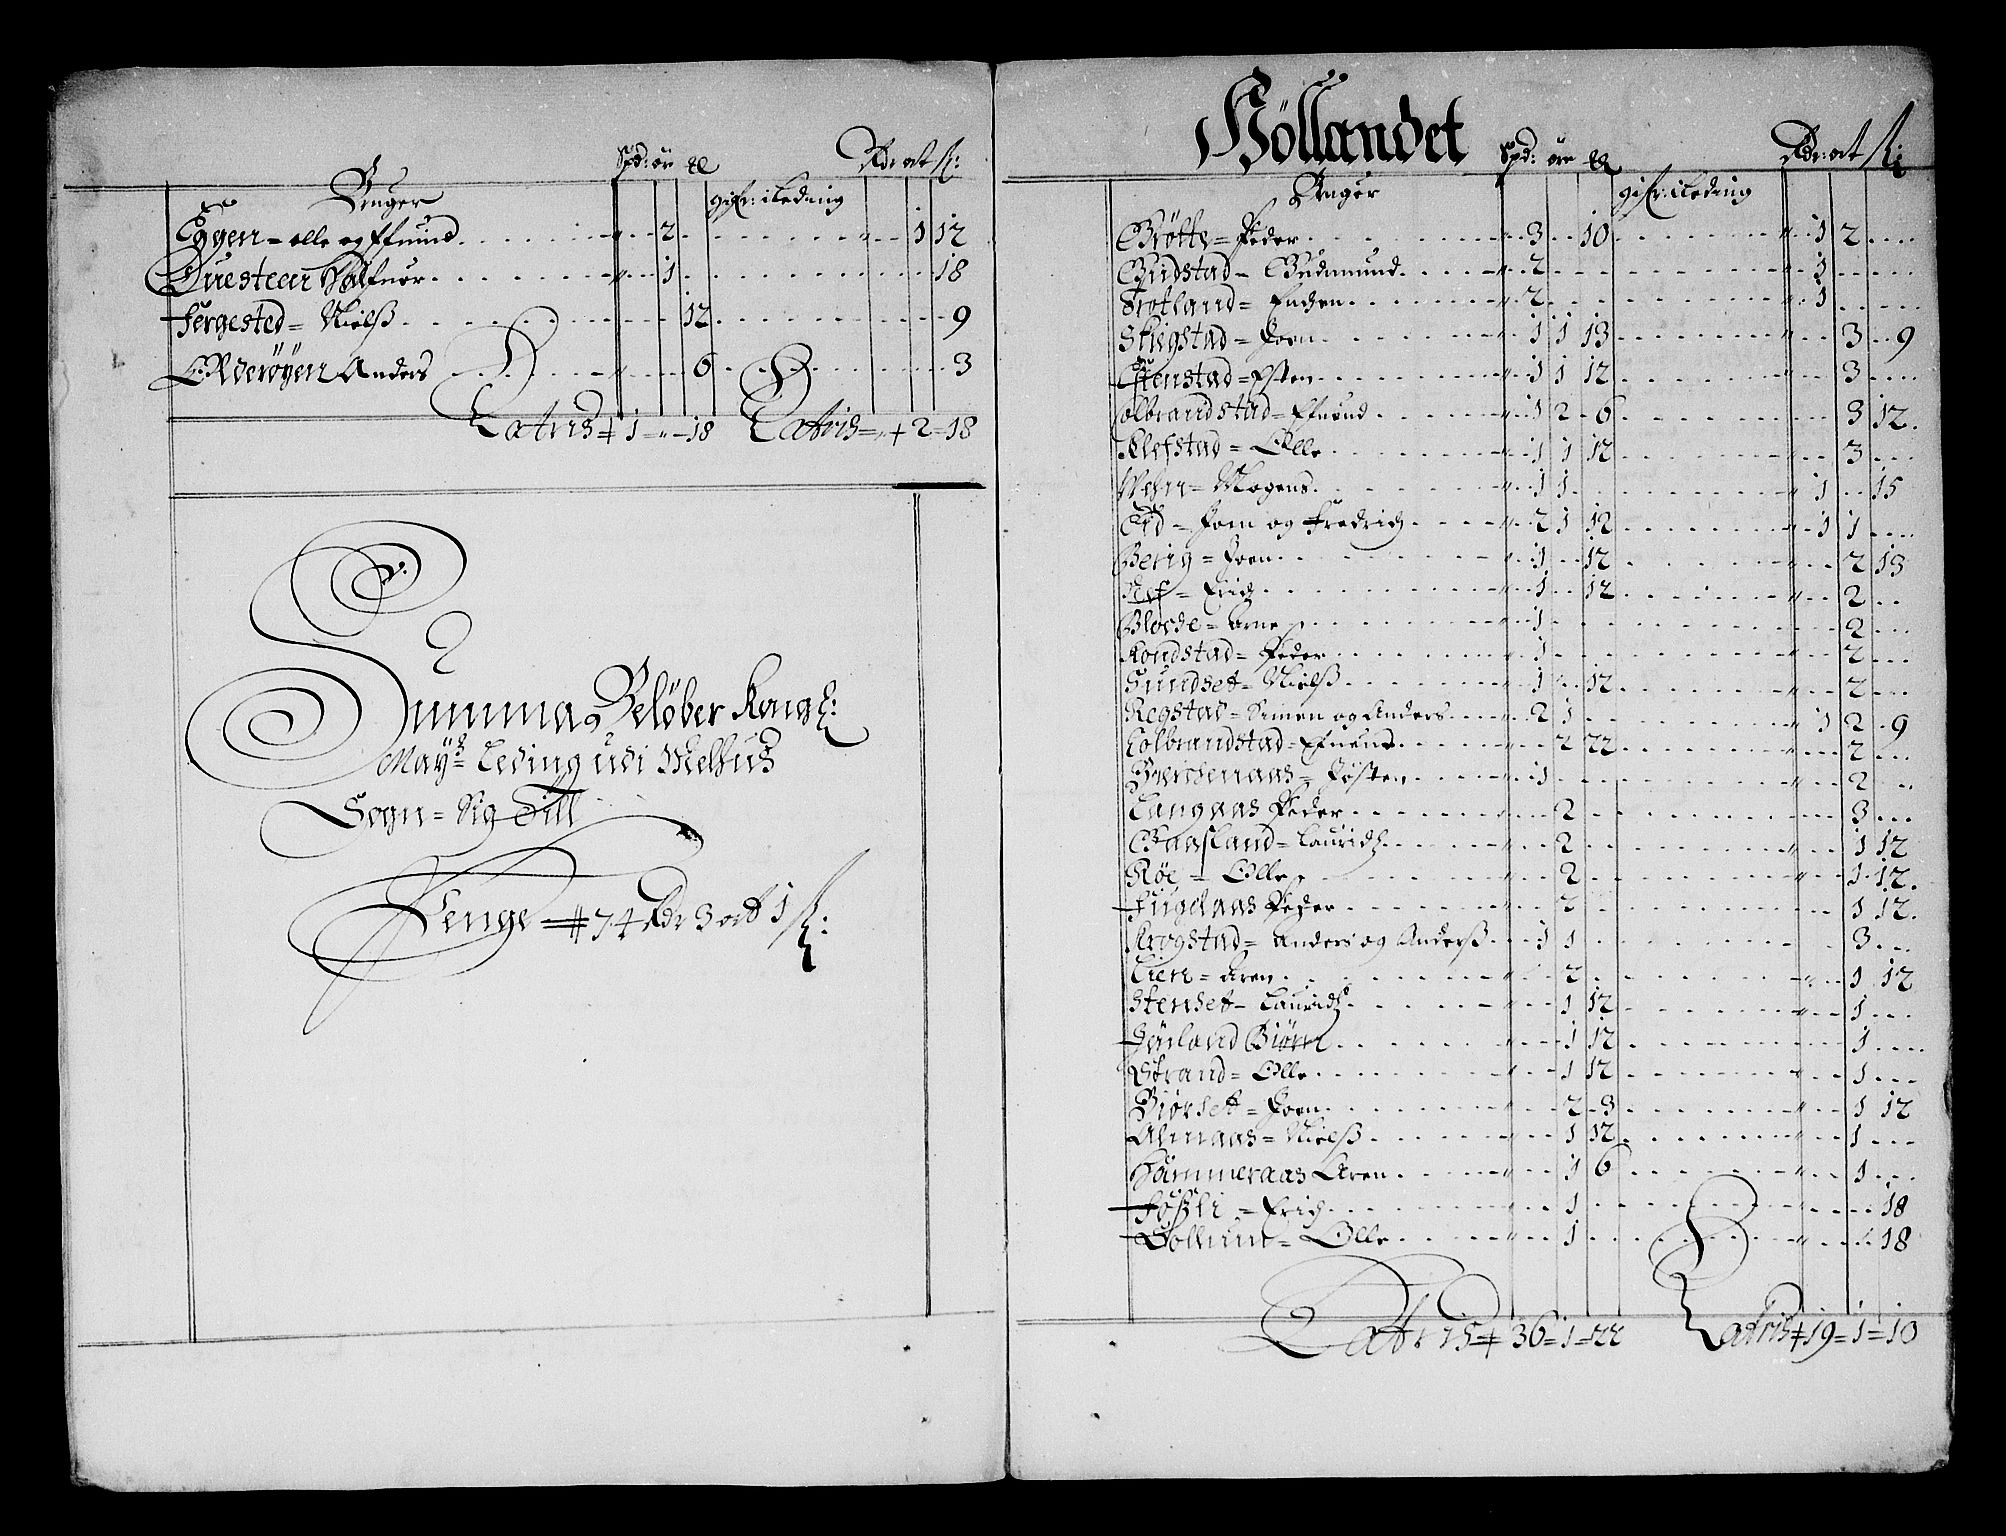 Spd: ör
Rdr ort ſ:
Bruger
gifr: i leding
Eggen = olle og Efwind 2 1 12
Questeen Halfuor 1 18
Fergested = Nielß 12 9
Olderöyen Anders 6 3
Lateris 1 = 18 Lateris 2 = 18
Summa Belöber Kongl:
Mayts Leding udi Melhus
Sogn = Sig Till
Penge = 74 Rdr 3 ort 1 ſ:
Höllandet
Spd: öre
Rdr: ort ſ:
Bruger
gifr: i leding
Grötte = Peder 3 10 1 2
Gudstad = Gudmund 2 1
Frotland = Enchen 2 1
Skiegstad = Joen 1 1 13 3 9
Estenstad = Esten 1 1 12 3
Colbrandstad = Efuend 1 2 6 3 12
Klefstad = Olle 1 1 12 3
Wehn = Mogens 1 1 1 15
Eid = Joen og Fredrich 2 1 12 1 1
Berig = Joen 1 12 2 13
Erich 1 12 2
Blosche = Arne 1 2
Rondstad = Peder 1 2
Sundset = Nielß 1 12 2
Regstad = Simen og Anders 2 1 1 2 9
Colbrandstad = Efuend 2 22 2
Jösten 1 2
Langaas Peder 2 3
Gaasland = Lauridtz 2 1 12
Röe = Olle 2 1 12
Fugelaas Peder 2 1 12
Krogstad = Anders og Anderß 1 1 3
Lien = Aren 2 1 12
Stenset = Lauridtz 1 12 1
Biörn 1 12 1
Strand = Olle 1 12 1
Biörset = Joen 2 3 1 12
Almaas = Nielß 1 12 1
Hammeraas Aren 1 6 1
Foßli = Erich 1 18
Sollium = Olle 1 18
Lateris 36 = 1 = 22 Lateris 19 = 1 = 10